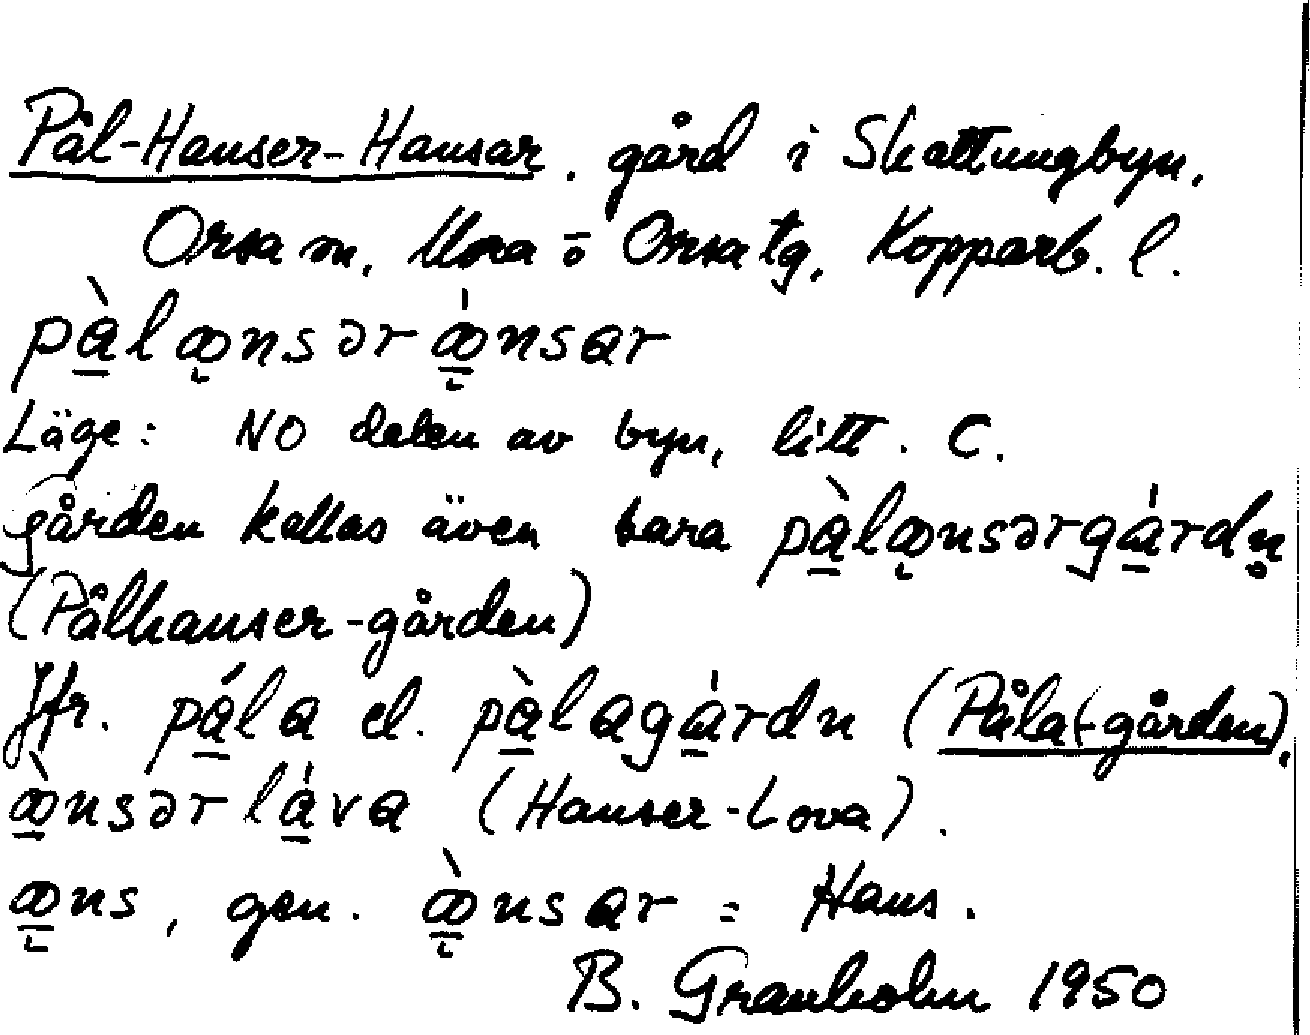 Pål-Hanser-Hansar. gård i Skattungbyn,
Orsa sn, Mora o Orsa tg, Kopparb. l.
pàlꝏnsərꝏ́nsar
Läge: NO delen av byn, litt. C.
gården kallas även bara pàlꝏnsərgárdn̥
(Pålhanser-gården)
Jfr. pála el. pàlagárdn (Påla(-gården),
ꝏ̀nsərláva (Hanser-Lova).
ꝏns, gen. ꝏ̀nsar = Hans.
B. Granholm 1950